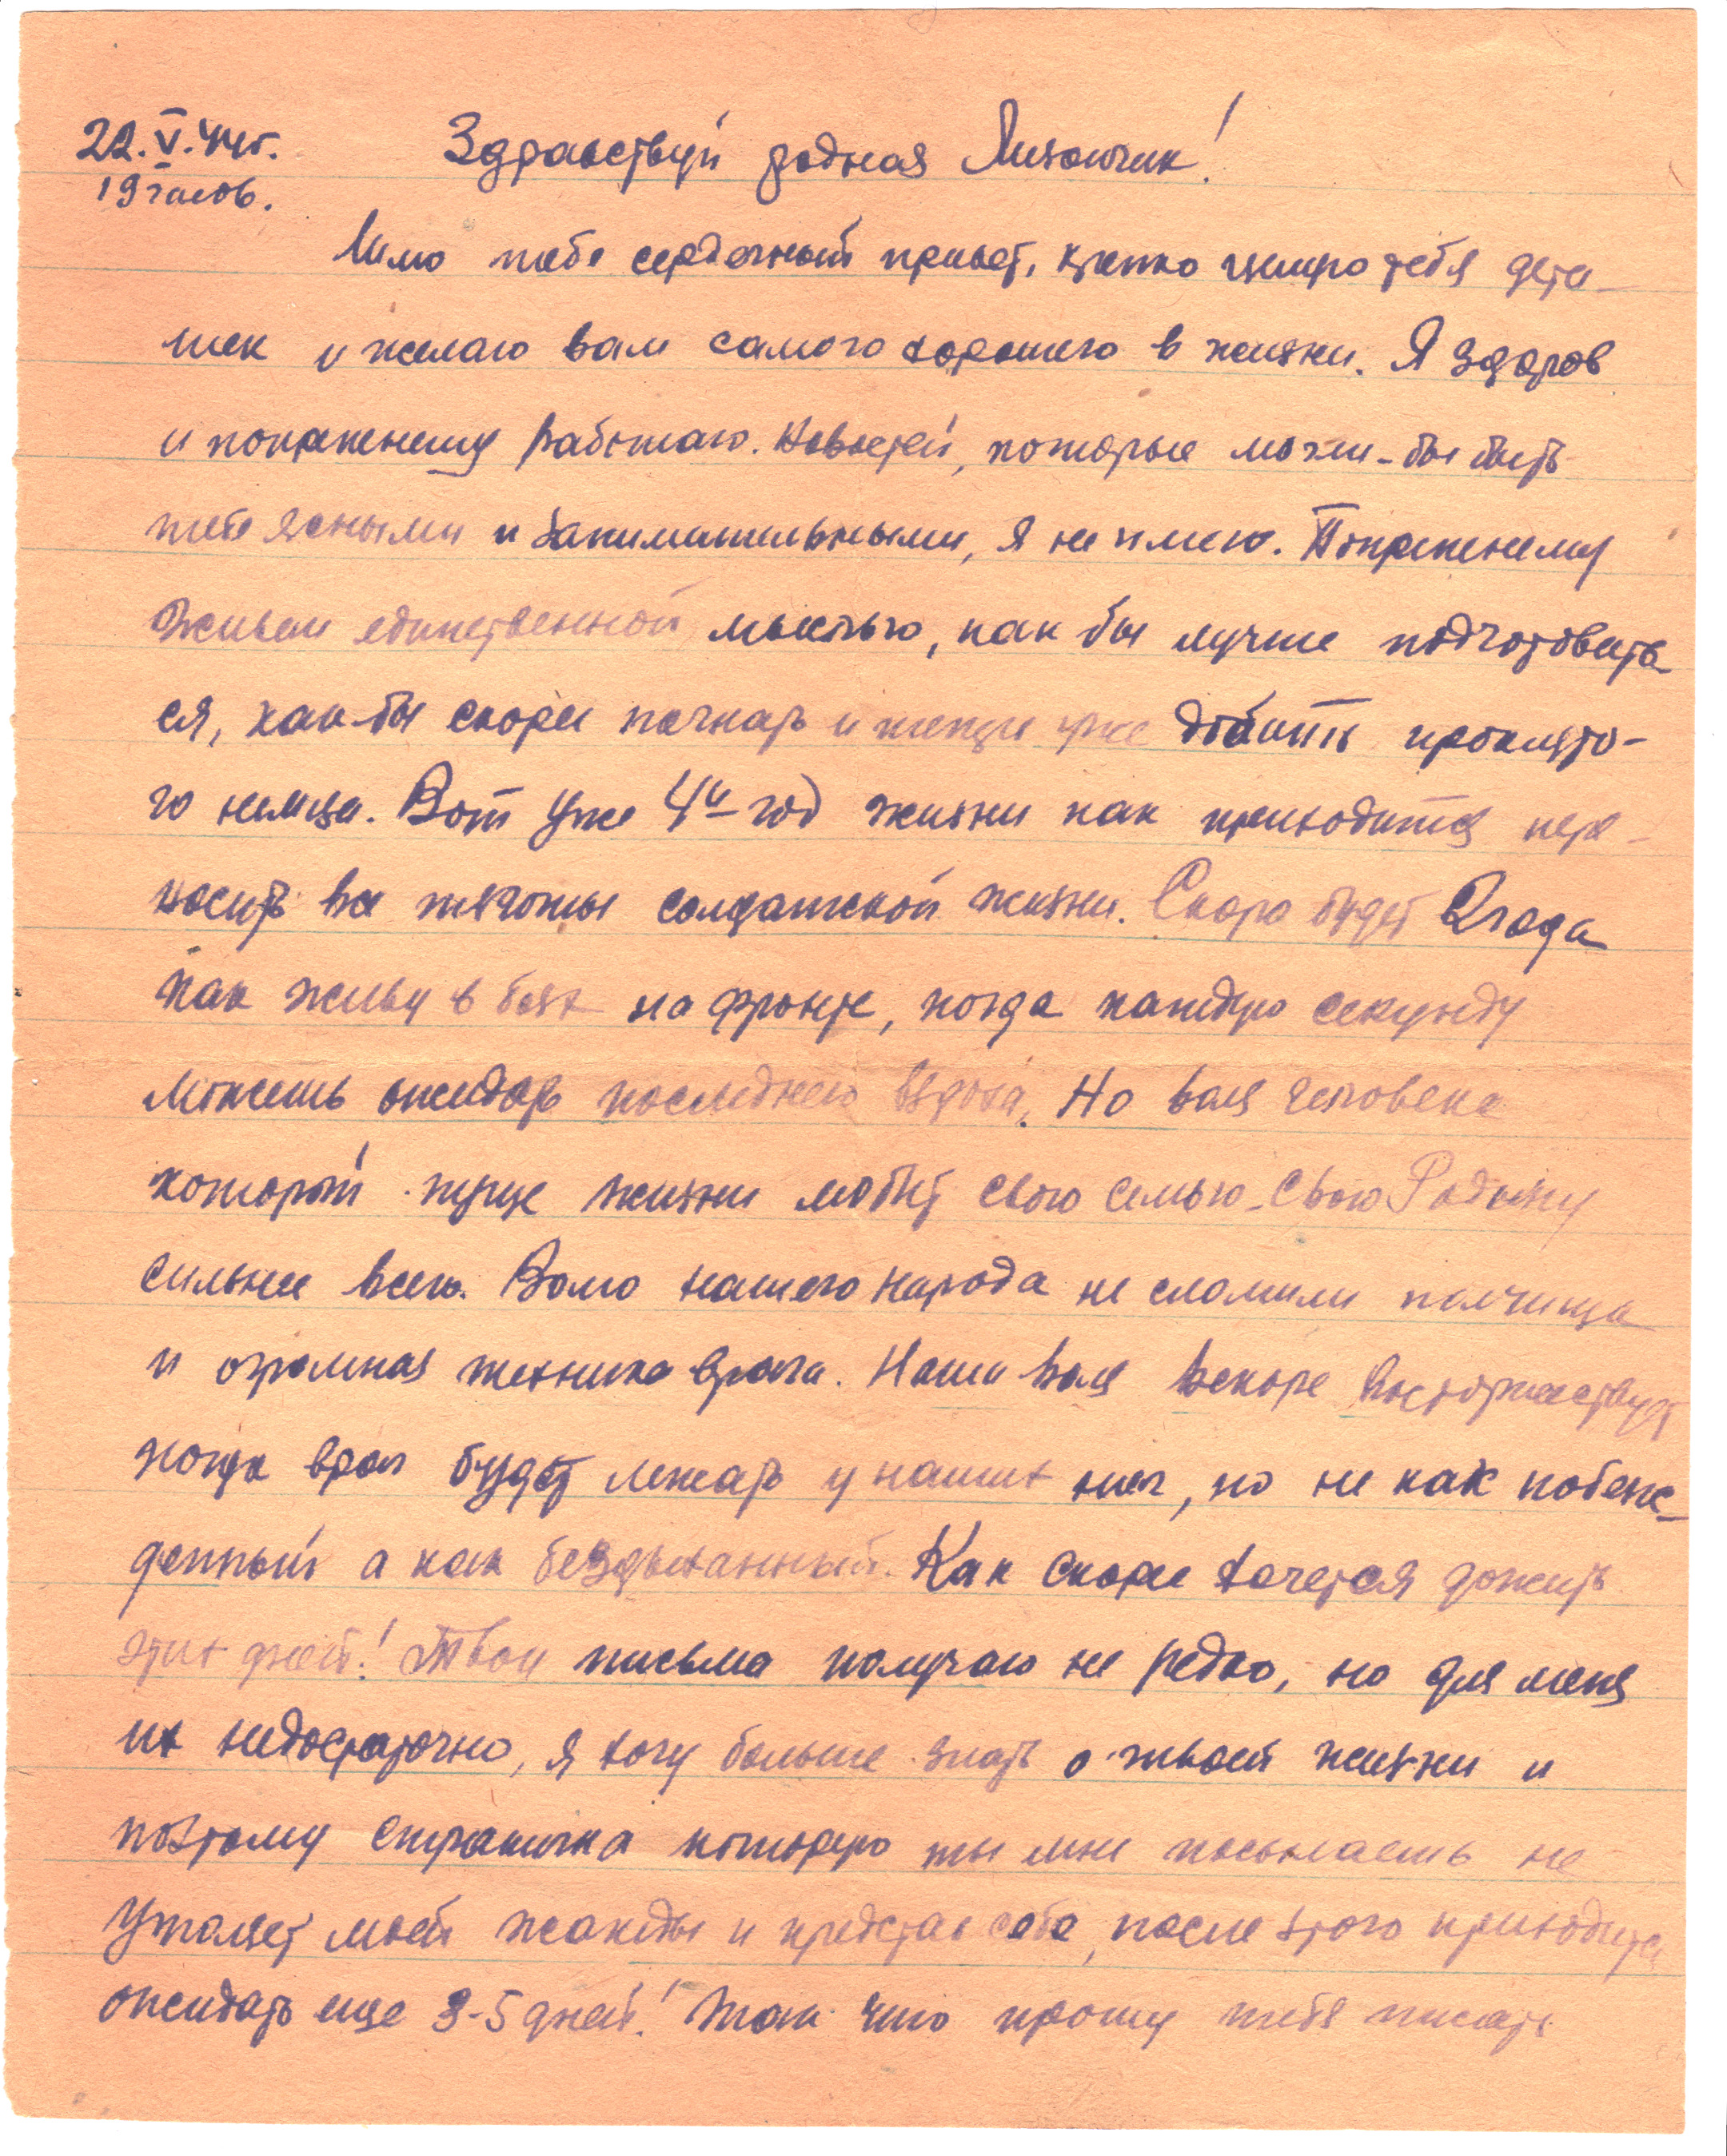 22.V.44г.
19 часов.
Здравствуй родная Лизончик!
Шлю тебе сердечный привет, крепко целую тебя дета-
шек и желаю вам самого хорошего в жизни. Я здоров
и попрежнему работаю. Новостей, которые могли-бы быть
тебе ясными и занимательными, я не имею. Попрежнему
живем единственной мыслью, как бы лучше подготовить-
ся, как-бы скорее начать и теперь уже добить проклято-
го немца. Вот уже 4й год жизни как приходится пере-
носить все тяготы солдатской жизни. Скоро будет 2 года
как живу в боях на фронте, когда каждую секунду
можешь ожидать последнего вздоха. Но воля человека
который пуще жизни любит свою семью-свою Родину
сильнее всего. Волю нашего народа не сломили полчища
и огромная техника врага. Наша воля вскоре восторжествует
когда враг будет лежать у наших ног, но не как побеж-
денный а как бездыханный. Как скорее хочется дожить
этих дней! Твои письма получаю не редко, но для меня
их недостаточно, я хочу больше знать о твоей жизни и
поэтому страничка которую ты мне посылаешь не
утоляет моей жажды и представь себе, после этого приходится
ожидать еще 3-5 дней! Так что прошу тебя писать